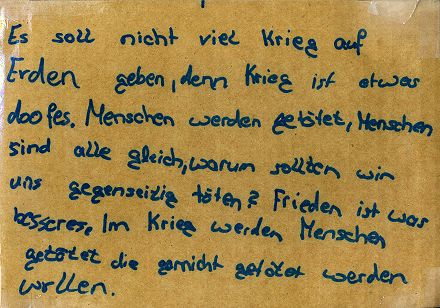 Es soll nicht viel Krieg auf
Erden geben, denn Krieg ist etwas
doofes. Menschen werden getötet, Menschen
sind alle gleich, warum sollten wir
uns gegenseitig töten? Frieden ist was
besseres. Im Krieg werden Menschen
getötet die garnicht getötet werden
wollen.